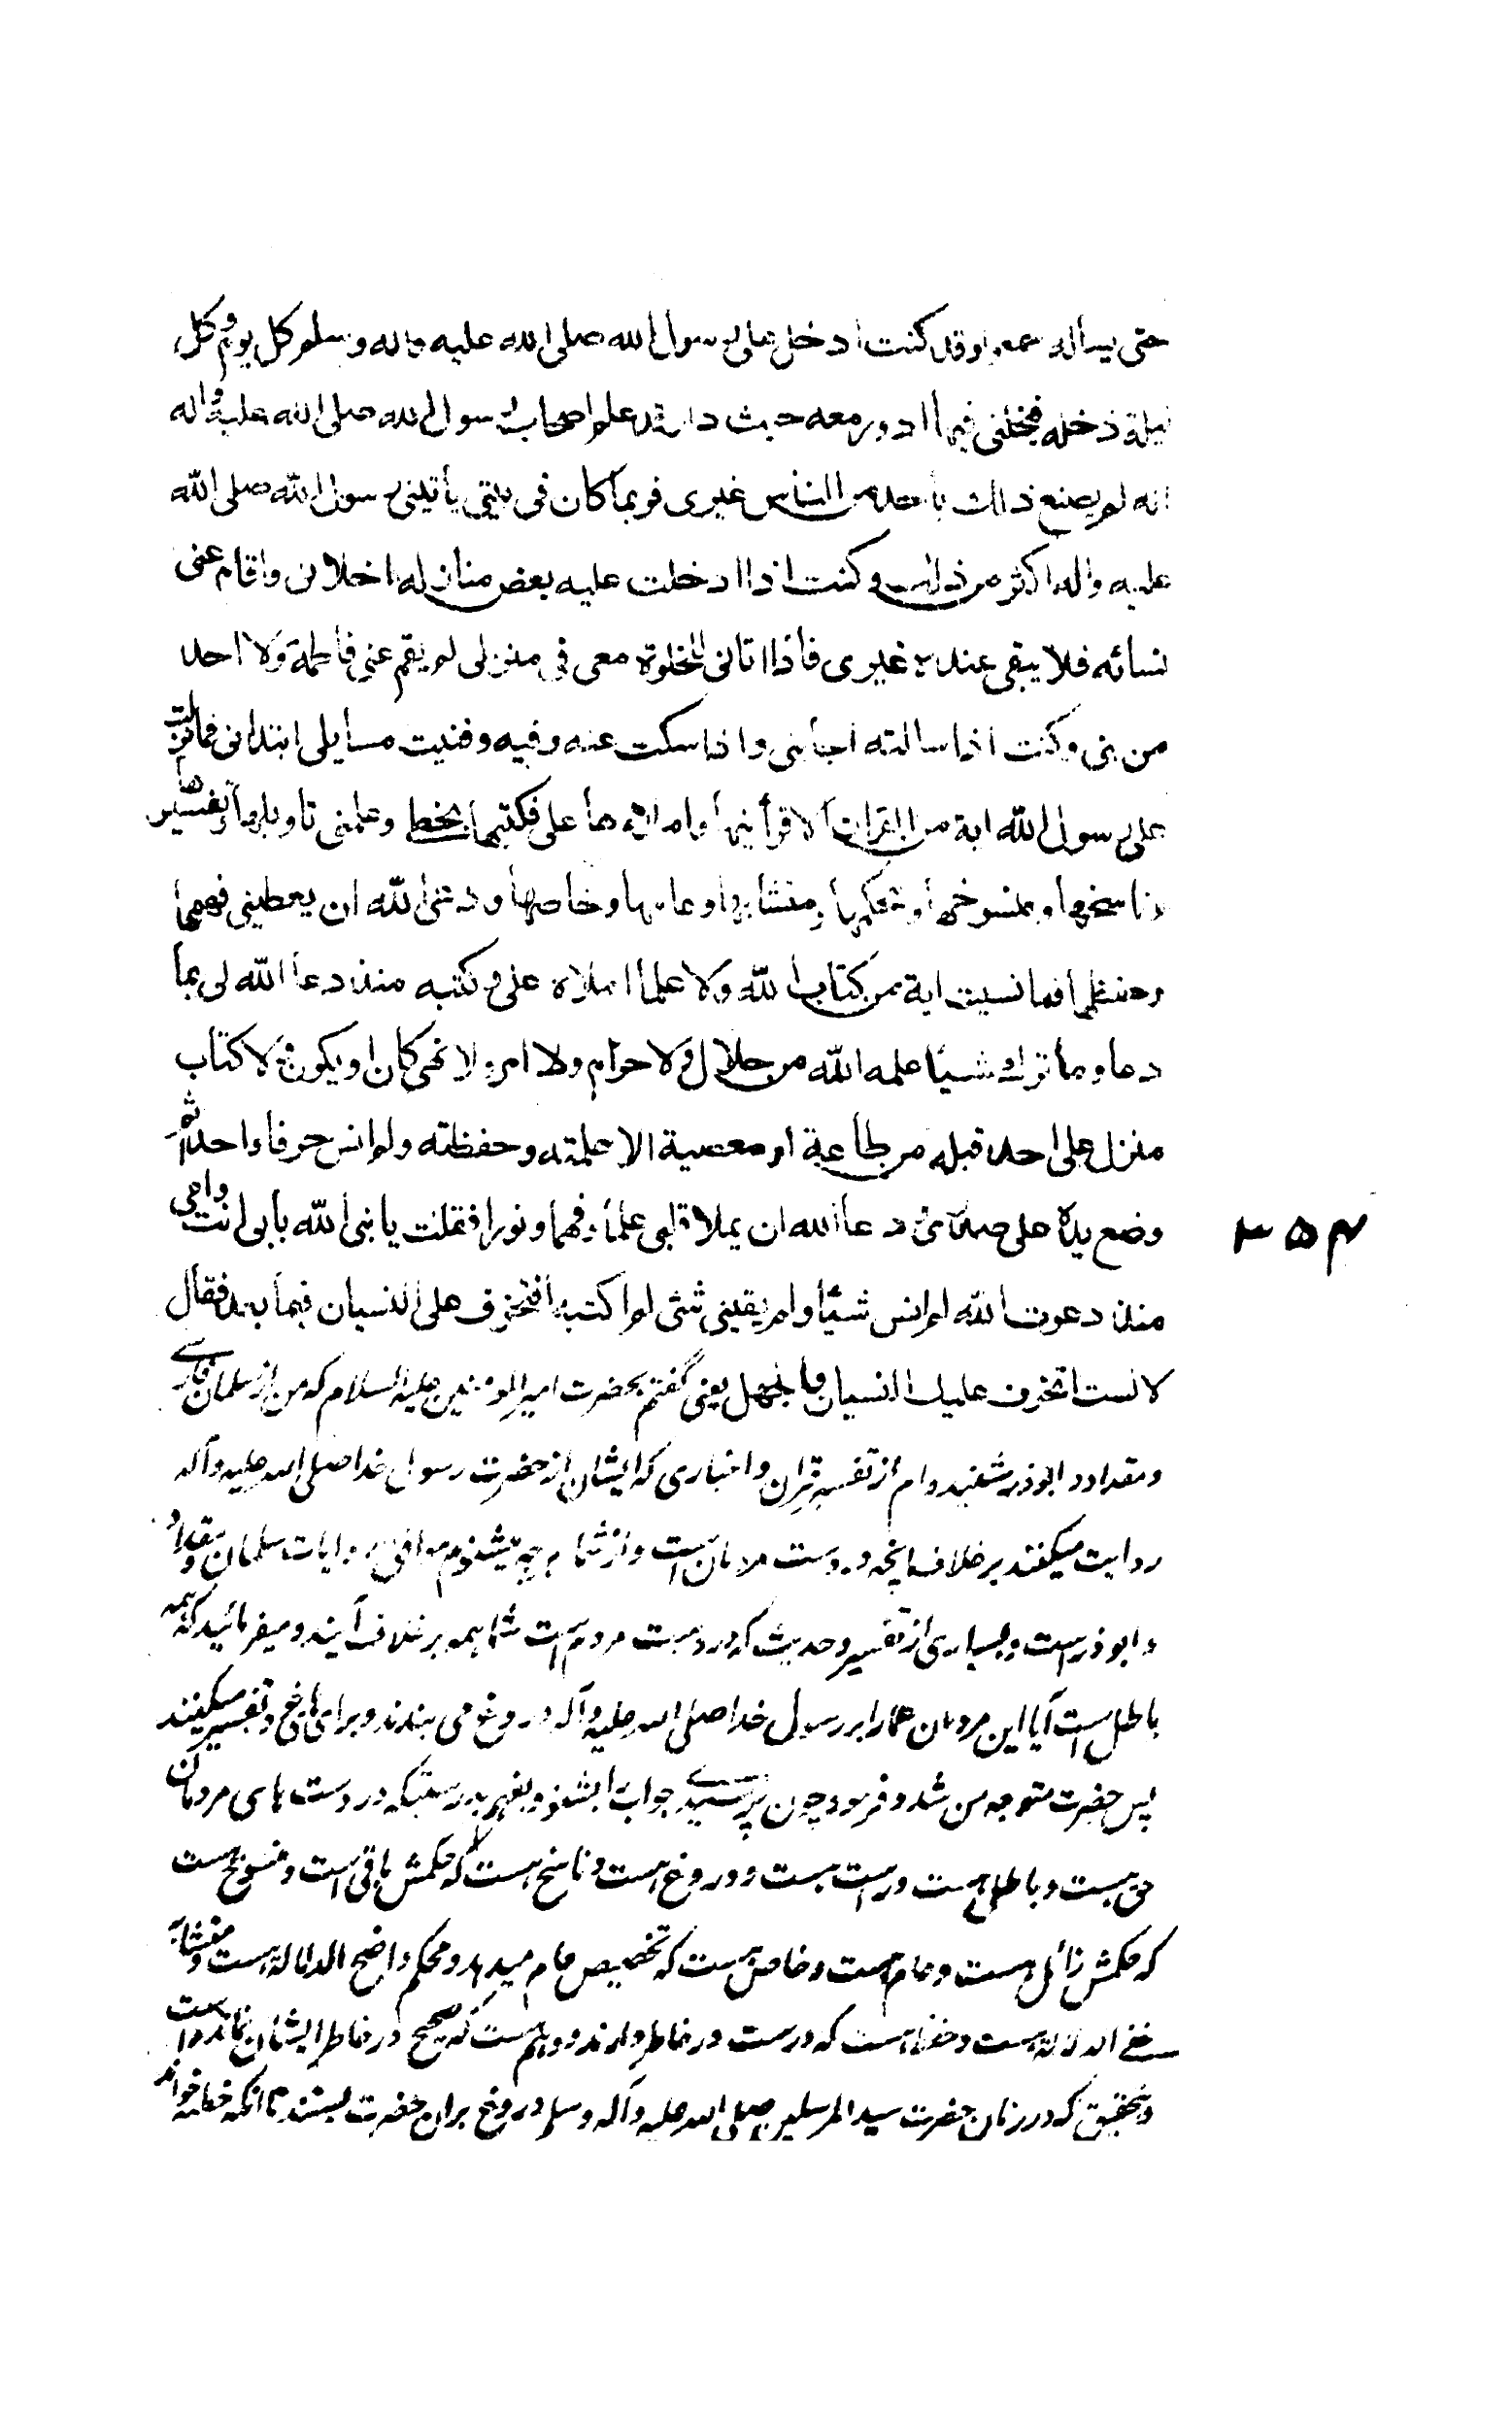 حتی یسأله سمعه او قد کنت ادخل علی رسول الله صلی الله علیه واله وسلم کل یوم و کل
لیلة دخله فیخلنی فیها ادور معه حیث دار وقد علم اصحاب رسول الله صلی الله علیه واله
انه لم یصنع ذلك باحد من الناس غیری فربما کان فی بیتی یأتینی رسول الله صلی الله
علیه واله اکثر من ذلك وکنت اذا ادخلت علیه بعض منازله اخلانی واقام عنی
نسائه فلا یبقی عنده غیری فاذا اتانی للخلوة معی فی منزلی لم یقم عنی فاطمة ولا احد
من بنی وکنت اذا سالته اجابنی واذا سکت عنه وفیه وفنیت مسایلی ابتدانی فما نزلت
علی رسول الله ایة من القران الا قرأنیها واملاءها علی فکتبها بخط وعلمنی تاویلها وتفسیرها
وناسخها ومنسوخها ومحکمها ومتشابهها وعامها وخاصها ودعی الله ان یعطینی فهمها
وحفظها فما نسیت ایة من کتاب الله ولا علما املاه علی وکتبه منذ دعا الله لی بما
دعا وما ترك شیئا علمه الله من حلال ولا حرام ولا امر ولا نهی کان او یکون ولا کتاب
منزل علی احد قبله من طاعة او معصیة الا علمته وحفظته ولم انس حرفا واحدا ثم
وضع یده علی صدری ودعا الله ان یملا قلبی علما وفهما ونورا فقلت یا نبی الله بابی انت وامی
منذ دعوت الله لم انس شیئا ولم یفتنی شئ لم اکتبه افتخوف علی النسیان فیما بعد فقال
لا لست اتخوف علیك النسیان والجهل یعنی گفتم بحضرت امیر المومنین علیه السلام که من از سلمان فارسے
ومقداد و ابوذر شنیده ام از تفسیر قران واخباری که ایشان از حضرت رسول خدا صلی الله علیه وآله
روایت میکنند برخلاف آنچه در دست مردمان است واز شما هرچه میشنوم موافق روایات سلمان ومقداد
وابوذر است وبسیاری از تفسیر وحدیث که در دست مردم است شما همه برخلاف آنید ومیفرمائید که همه
باطل است آیا این مردمان عمدا بر رسول خدا صلی الله علیه وآله دروغ می بندند وبرای خود تفسیر میکنند
پس حضرت متوجه من شد وفرمود چون پرسیدے جواب را بشنو وبفهم بدرستیکه در دست های مردمان
حق هست وباطل هست وراست هست ودروغ هست وناسخ هست که حکمش باقی است ومنسوخ هست
که حکمش زائل هست وعام هست وخاص هست که تخصیص عام میدهد ومحکم واضح الدلاله هست ومتشابه
خفے الدلاله هست وحفظ هست که درست در خاطر دارند ووهم هست که صحیح در خاطر ایشان نمانده است
وبتحقیق که در زمان حضرت سید المرسلین صلی الله علیه وآله وسلم دروغ بران حضرت بستند تا آنکه خطبه خواند
۳۵۴